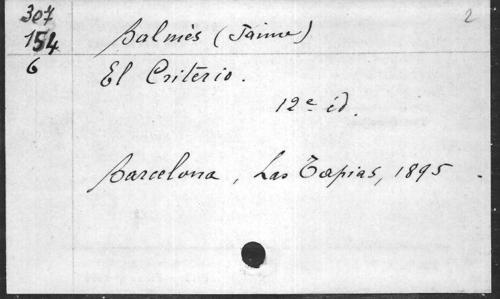 307
154
6
2
Balmès (Jaime)
El Criterio.
12e éd.
Barcelona, Las Tapias, 1895.